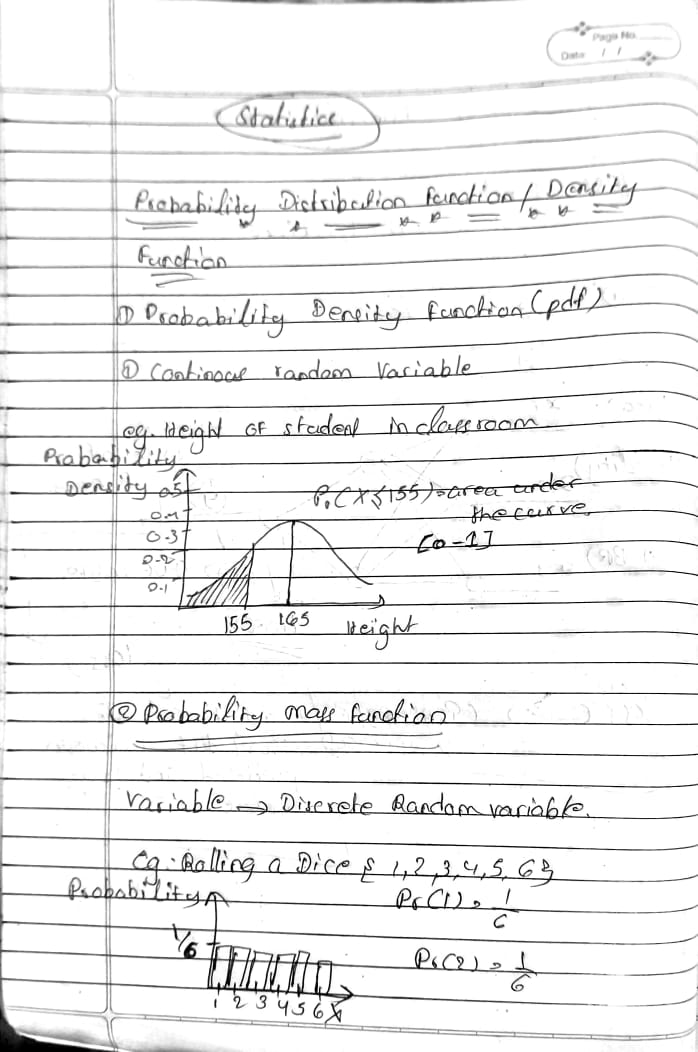 Page No.
Date / /
Statistics
Probability Distribution Function / Density
Function
① Probability Density Function (pdf)
① Continous random Variable
eg. Height OF student in classroom
Probability
Density 0.5
0.4
0.3
0.2
0.1
Pr(X≤155) = area under
the curve.
[0-1]
155 165 Height
② Probability mass function
Variable → Discrete Random variable.
Eg:- Rolling a Dice { 1,2,3,4,5,6}
Probability
Pr(1) = 1/6
1/6
Pr(2) = 1/6
1 2 3 4 5 6 X